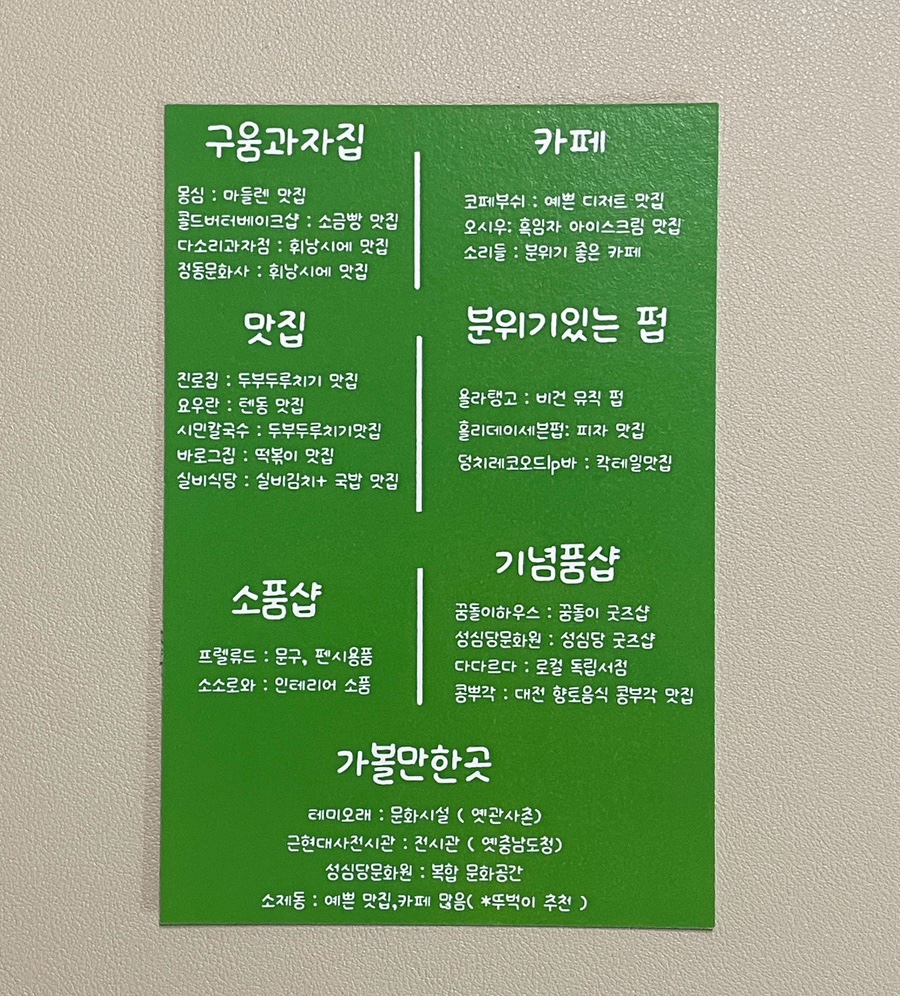 구움과자집
몽심 : 마들렌 맛집
콜드버터베이크샵 : 소금빵 맛집
다소리과자점 : 휘낭시에 맛집
정동문화사 : 휘낭시에 맛집
카페
코페부쉬 : 예쁜 디저트 맛집
오시우: 흑임자 아이스크림 맛집
소리들 : 분위기 좋은 카페
맛집
진로집 : 두부두루치기 맛집
요우란 : 텐동 맛집
시민칼국수 : 두부두루치기맛집
바로그집 : 떡볶이 맛집
실비식당 : 실비김치+ 국밥 맛집
분위기있는 펍
올라탱고 : 비건 뮤직 펍
홀리데이세븐펍: 피자 맛집
덩치레코오드lp바 : 칵테일맛집
소품샵
프렐류드 : 문구, 펜시용품
소소로와 : 인테리어 소품
기념품샵
꿈돌이하우스 : 꿈돌이 굿즈샵
성심당문화원 : 성심당 굿즈샵
다다르다 : 로컬 독립서점
콩뿌각 : 대전 향토음식 콩부각 맛집
가볼만한곳
테미오래 : 문화시설 ( 옛관사촌)
근현대사전시관 : 전시관 ( 옛충남도청)
성심당문화원 : 복합 문화공간
소제동 : 예쁜 맛집,카페 많음( *뚜벅이 추천 )